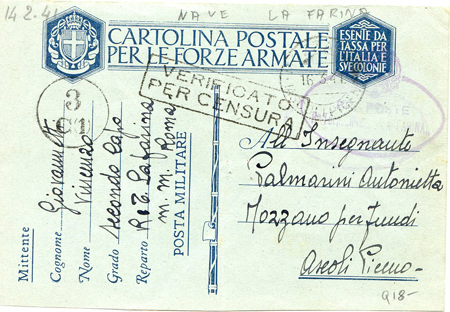 14.2.41 NAVE LA FARINA
CARTOLINA POSTALE
PER LE FORZE ARMATE
ESENTE DA
TASSA PER
L'ITALIA E
SVE COLONIE
VERIFICATO
PER CENSURA
3
61
Mittente
Cognome
Nome Vincenzo
Grado Secondo Capo
Reparto R.T. La Farina
M. M. Roma
POSTA MILITARE
All' Insegnante
Palmarini Antonietta
Mozzano per Fundi
Ascoli Piceno
Q18-